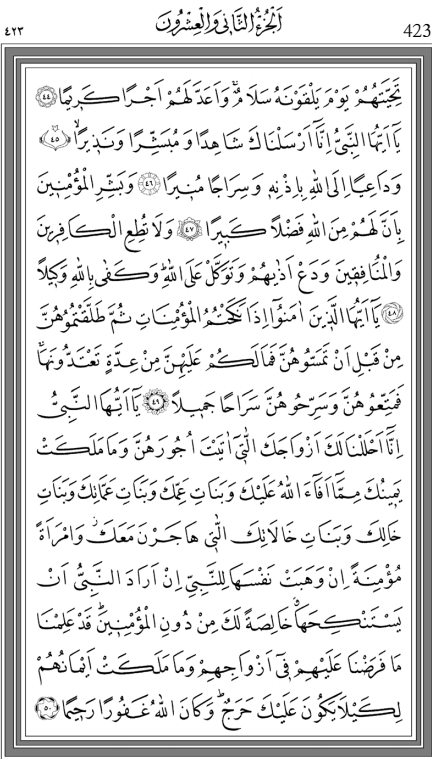 ٤٢٣ اَلْجُزْءُ الثَّانِى وَالْعِشْرُونَ 423
تَحِيَّتُهُمْ يَوْمَ يَلْقَوْنَهُ سَلَامٌۚ وَاَعَدَّ لَهُمْ اَجْرًا كَرِيمًا ﴿٤٤﴾
يَٓا اَيُّهَا النَّبِىُّ اِنَّٓا اَرْسَلْنَاكَ شَاهِدًا وَمُبَشِّرًا وَنَذِيرًاۙ ﴿٤٥﴾
وَدَاعِيًا اِلَى اللّٰهِ بِاِذْنِهِ وَسِرَاجًا مُنِيرًا ﴿٤٦﴾ وَبَشِّرِ الْمُؤْمِنِينَ
بِاَنَّ لَهُمْ مِنَ اللّٰهِ فَضْلًا كَبِيرًا ﴿٤٧﴾ وَلَا تُطِعِ الْكَافِرِينَ
وَالْمُنَافِقِينَ وَدَعْ اَذٰيهُمْ وَتَوَكَّلْ عَلَى اللّٰهِۜ وَكَفٰى بِاللّٰهِ وَكِيلًا
﴿٤٨﴾ يَٓا اَيُّهَا الَّذِينَ اٰمَنُٓوا اِذَا نَكَحْتُمُ الْمُؤْمِنَاتِ ثُمَّ طَلَّقْتُمُوهُنَّ
مِنْ قَبْلِ اَنْ تَمَسُّوهُنَّ فَمَا لَكُمْ عَلَيْهِنَّ مِنْ عِدَّةٍ تَعْتَدُّونَهَاۚ
فَمَتِّعُوهُنَّ وَسَرِّحُوهُنَّ سَرَاحًا جَمِيلًا ﴿٤٩﴾ يَٓا اَيُّهَا النَّبِىُّ
اِنَّٓا اَحْلَلْنَا لَكَ اَزْوَاجَكَ الّٰتِٓى اٰتَيْتَ اُجُورَهُنَّ وَمَا مَلَكَتْ
يَمِينُكَ مِمَّٓا اَفَٓاءَ اللّٰهُ عَلَيْكَ وَبَنَاتِ عَمِّكَ وَبَنَاتِ عَمَّاتِكَ وَبَنَاتِ
خَالِكَ وَبَنَاتِ خَالَاتِكَ الّٰتِى هَاجَرْنَ مَعَكَۘ وَامْرَاَةً
مُؤْمِنَةً اِنْ وَهَبَتْ نَفْسَهَا لِلنَّبِىِّ اِنْ اَرَادَ النَّبِىُّ اَنْ
يَسْتَنْكِحَهَاۗ خَالِصَةً لَكَ مِنْ دُونِ الْمُؤْمِنِينَۜ قَدْ عَلِمْنَا
مَا فَرَضْنَا عَلَيْهِمْ فِٓى اَزْوَاجِهِمْ وَمَا مَلَكَتْ اَيْمَانُهُمْ
لِكَيْلَا يَكُونَ عَلَيْكَ حَرَجٌۜ وَكَانَ اللّٰهُ غَفُورًا رَحِيمًا ﴿٥٠﴾